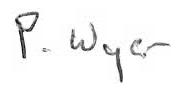 P. Wyer